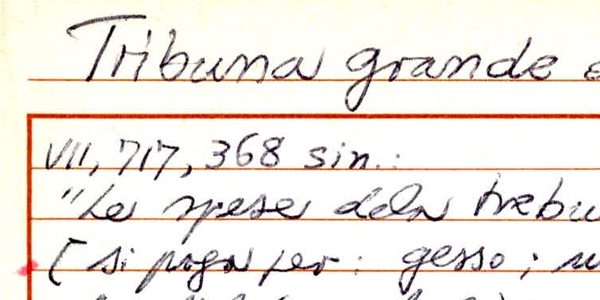 Tribuna grande
VII, 717, 368 sin.:
"Le spese dela trebu
[ si paga per : gesso ;